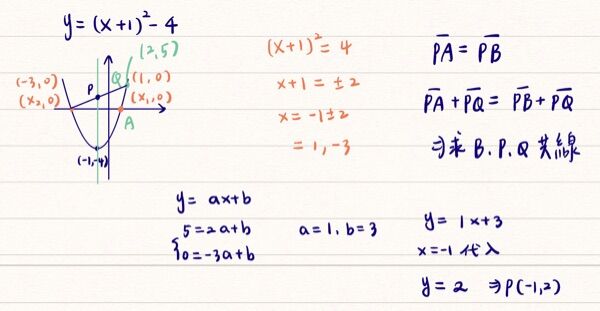 y = (x+1)² - 4
(2,5)
(-3,0)
(x₂,0)
P
Q
(1,0)
(x₁,0)
A
(-1,-4)
(x+1)² = 4
x+1 = ±2
x = -1±2
= 1, -3
P̅A̅ = P̅B̅
P̅A̅ + P̅Q̅ = P̅B̅ + P̅Q̅
⇒求 B.P.Q 共線
y = ax+b
{5 = 2a+b
0 = -3a+b
a = 1, b = 3
y = 1x+3
x = -1 代入
y = 2 ⇒ P(-1,2)